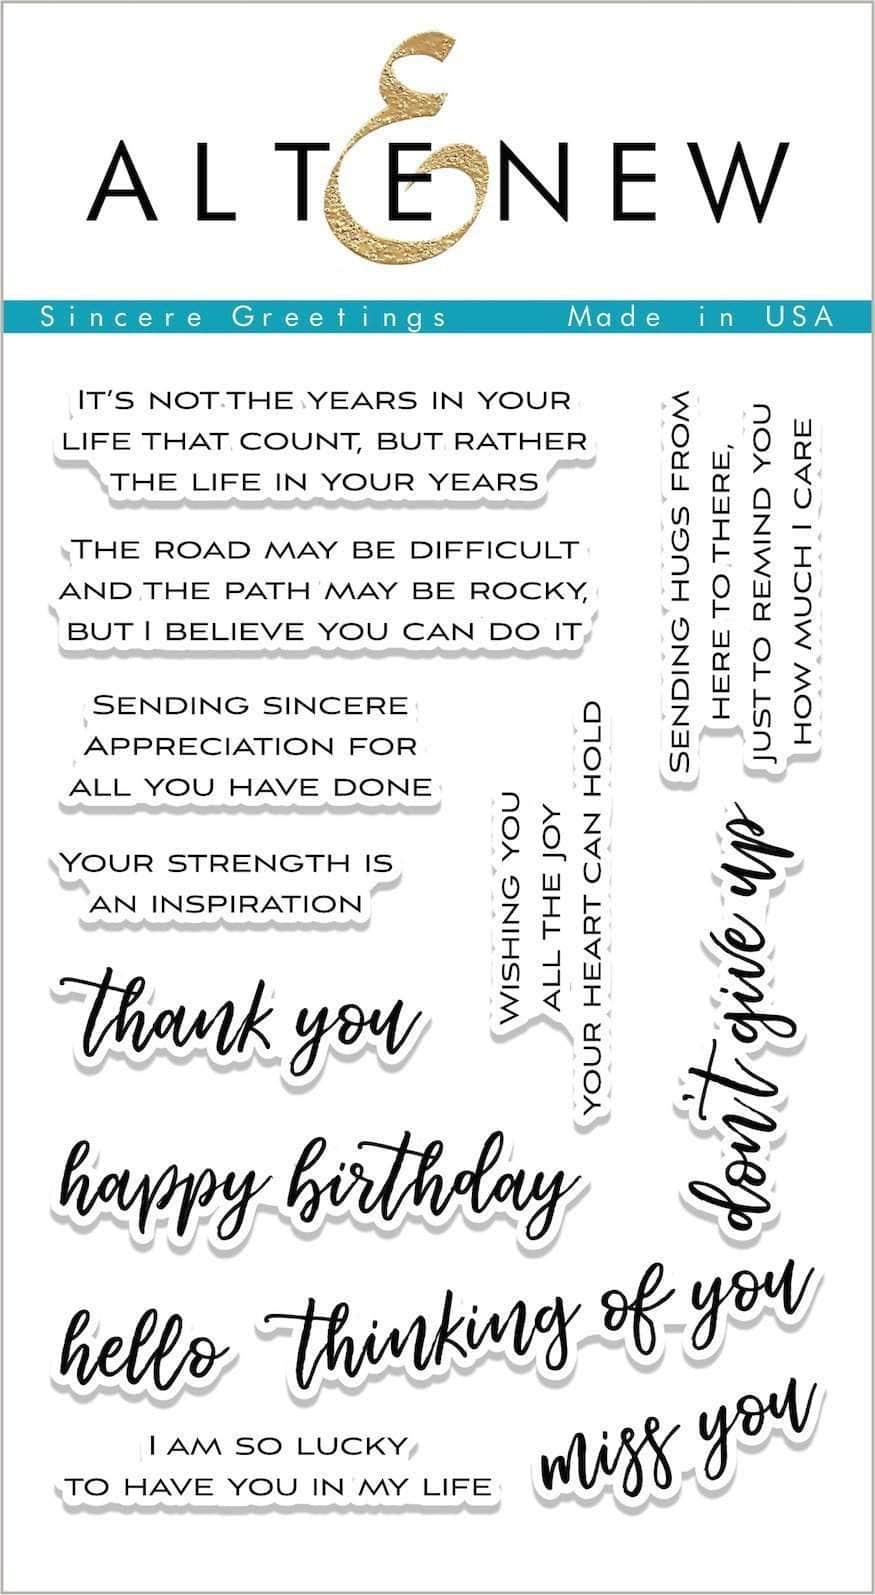 ALTENEW
Sincere Greetings Made in USA
IT'S NOT THE YEARS IN YOUR
LIFE THAT COUNT, BUT RATHER
THE LIFE IN YOUR YEARS
THE ROAD MAY BE DIFFICULT
AND THE PATH MAY BE ROCKY,
BUT I BELIEVE YOU CAN DO IT
SENDING SINCERE
APPRECIATION FOR
ALL YOU HAVE DONE
YOUR STRENGTH IS
AN INSPIRATION
SENDING HUGS FROM
HERE TO THERE,
JUST TO REMIND YOU
HOW MUCH I CARE
WISHING YOU
ALL THE JOY
YOUR HEART CAN HOLD
don't give up
thank you
happy birthday
hello
thinking of you
I AM SO LUCKY
TO HAVE YOU IN MY LIFE
miss you